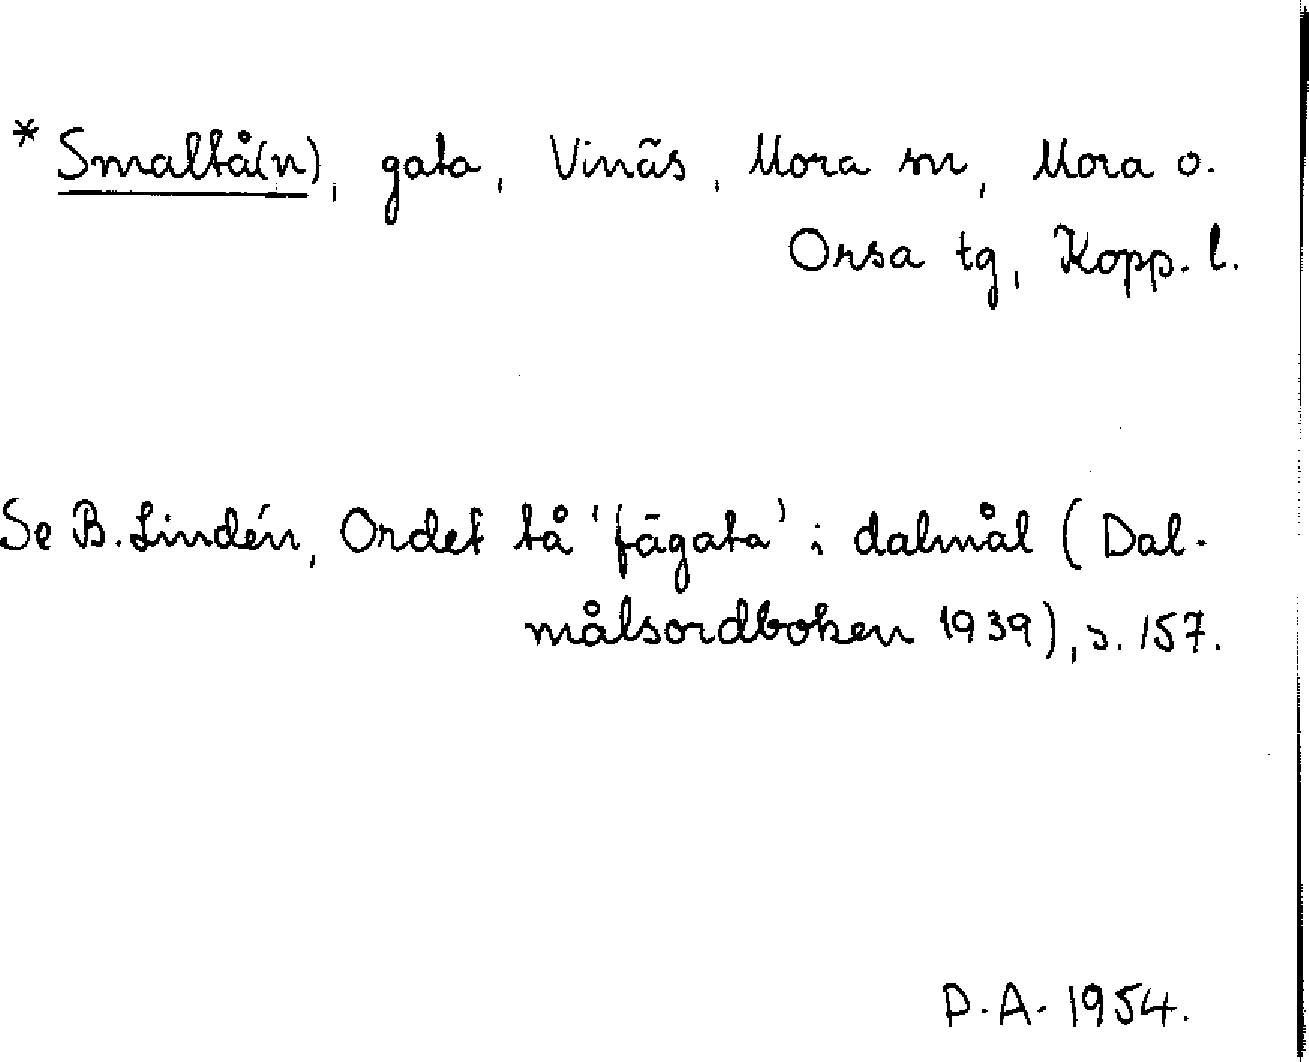 * Smaltå(n), gata, Vinäs, Mora sn, Mora o.
Orsa tg, Kopp. l.
Se B. Lindén, Ordet tå 'fägata' i dalmål (Dal-
målsordboken 1939), s. 157.
P.A. 1954.